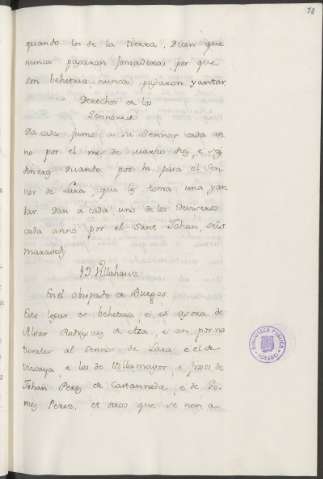 72
quando los de la tierra, dicen que
nunca pagaron fonsadera, por que
son behetria nunca pagaron yantar
Derechos de los
Señores
Da cada fumo a su Sennor cada an
no por el mes de marzo dos e
dineros quando por la para el Sen
nor de Lara, que les toma una yan
tar Dan a cada uno de los Deviseros
cada anno por el Sant Johan seis
maravedis
Villahaira
En el obispado de Burgos
Este logar es behetria e es agora de
Alvar Rodriguez de Aza, e an por na
turales al Sennor de Lara e el de
Vizcaya e los de Villamayor, e fijos de
Johan Perez de Castanneda, e de Go
mez Perez, et otros que se non a-
BIBLIOTECA PUBLICA